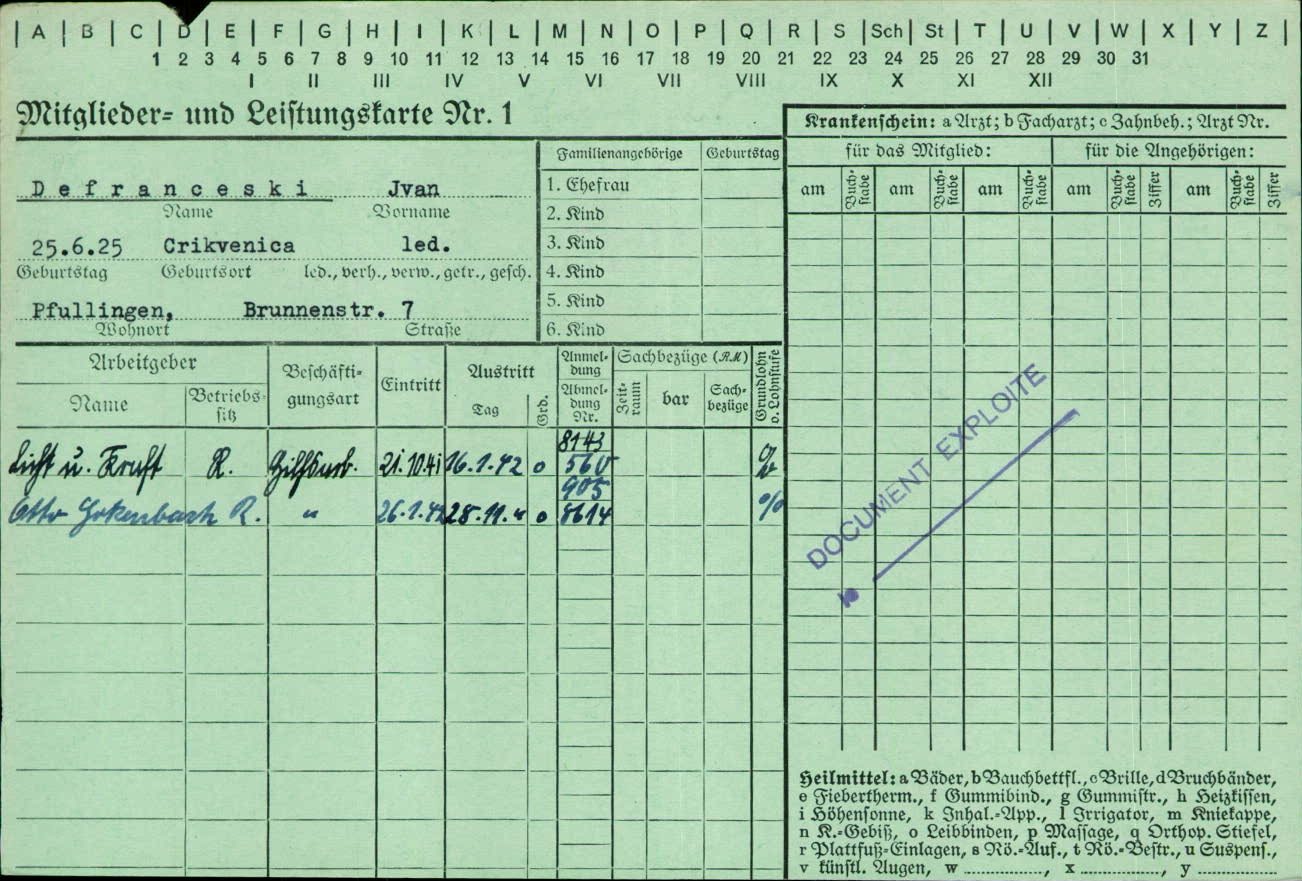 A B C D E F G H I K L M N O P Q R S Sch St T U V W X Y Z
1 2 3 4 5 6 7 8 9 10 11 12 13 14 15 16 17 18 19 20 21 22 23 24 25 26 27 28 29 30 31
I II III IV V VI VII VIII IX X XI XII
Mitglieder- und Leistungskarte Nr. 1
Defranceski Jvan
Name Vorname
25.6.25 Crikvenica led.
Geburtstag Geburtsort led., verh., verw., getr., gesch.
Pfullingen, Brunnenstr. 7
Wohnort Straße
Familienangehörige Geburtstag
1. Ehefrau
2. Kind
3. Kind
4. Kind
5. Kind
6. Kind
Krankenschein: a Arzt; b Facharzt; c Zahnbeh.; Arzt Nr.
für das Mitglied: für die Angehörigen:
am Buch-stabe am Buch-stabe am Buch-stabe am Buch-stabe Ziffer am Buch-stabe Ziffer
Arbeitgeber Beschäfti-gungsart Eintritt Austritt Anmel-dung Sachbezüge (RM) Grundlohn o. Lohnstufe
Name Betriebs-sitz Tag Grd. Abmel-dung Nr. Zeit-raum bar Sach-bezüge
8143
Licht u. Kraft R. Hilfsarb. 21.10.41 16.1.42 o 560
905
Otto R. " 26.1.42 28.11. " o 8614
DOCUMENT EXPLOITE
Heilmittel: a Bäder, b Bauchbettfl., c Brille, d Bruchbänder,
e Fiebertherm., f Gummibind., g Gummistr., h Heizkissen,
i Höhensonne, k Inhal.-App., l Irrigator, m Kniekappe,
n K.-Gebiß, o Leibbinden, p Massage, q Orthop. Stiefel,
r Plattfuß-Einlagen, s Rö.-Auf., t Rö.-Bestr., u Suspens.,
v künstl. Augen, w ............, x ............, y ............